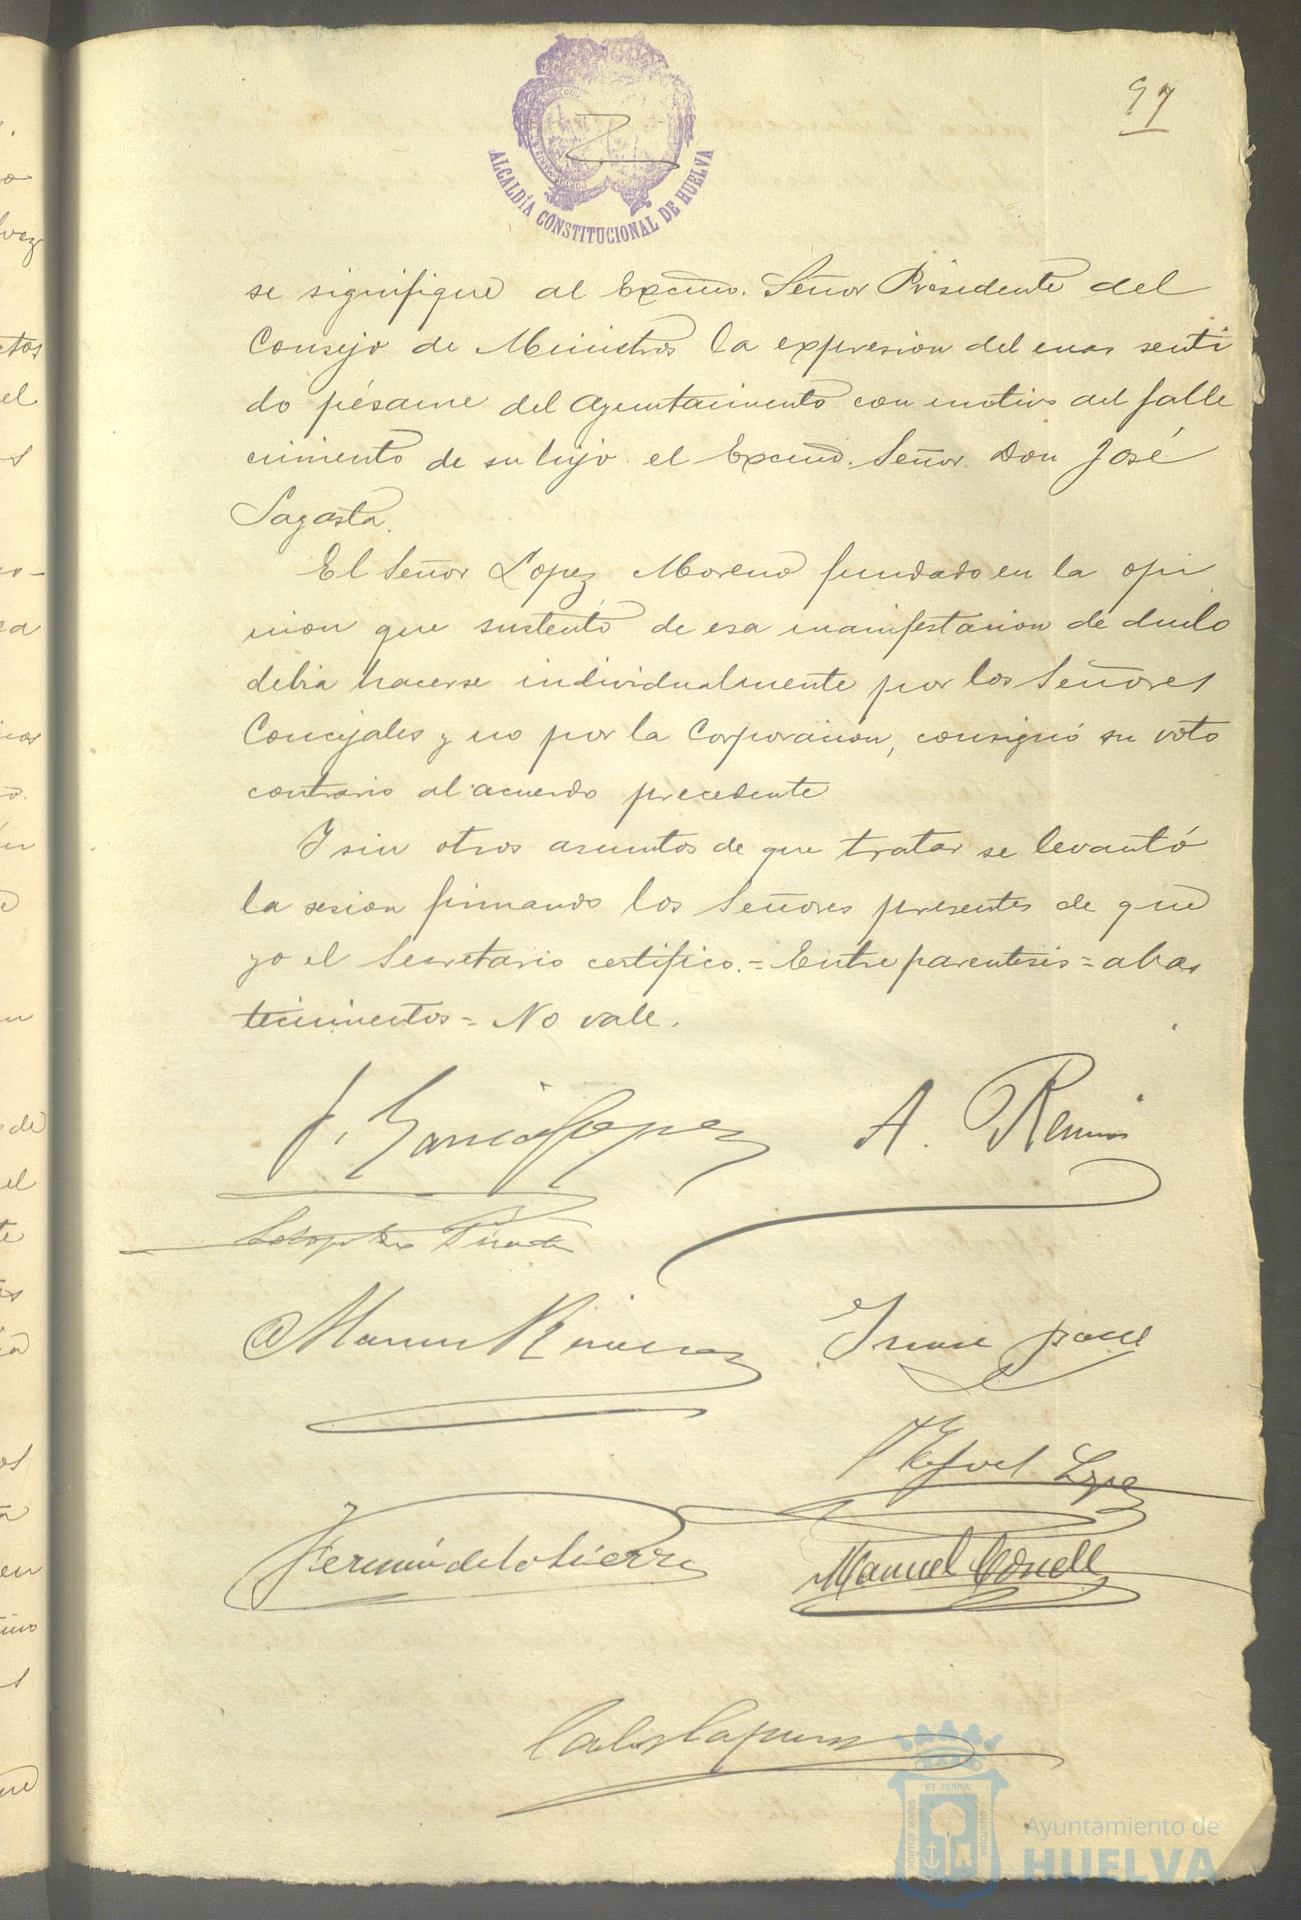 97
ALCALDÍA CONSTITUCIONAL DE HUELVA
se signifique al Excmo. Señor Presidente del
Consejo de Ministros la expresion del mas senti
do pésame del Ayuntamiento con motivo del falle
cimiento de su hijo el Excmo. Señor Don José
Sagasta.
El Señor Lopez Moreno fundado en la opi
nion que sustentó de esa manifestacion de duelo
debia hacerse individualmente por los Señores
Concejales y no por la Corporacion, consignó su voto
contrario al acuerdo precedente
Y sin otros asuntos de que tratar se levantó
la sesion firmando los Señores presentes de que
yo el Secretario certifico. = Entre parentesis = abas
tecimientos = No vale.
J. Garcia Lopez
A.
Manuel
Manuel
Fermín de la Sierra
ET TERRAE
PORTUS MARIS
CUSTODIA
Ayuntamiento de
HUELVA